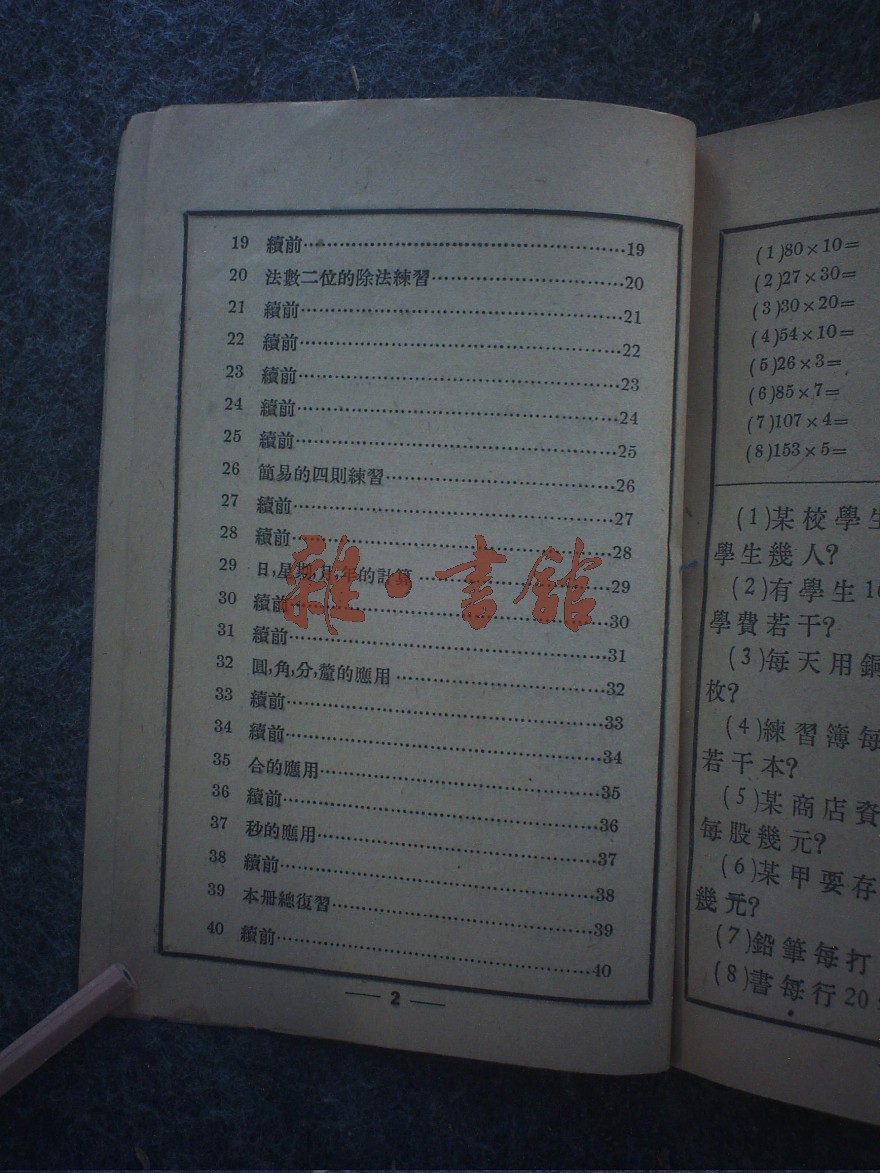 19 續前……19
20 法數二位的除法練習……20
21 續前……21
22 續前……22
23 續前……23
24 續前……24
25 續前……25
26 簡易的四則練習……26
27 續前……27
28 續前……28
29 日,星期,月,年的計算……29
30 續前……30
31 續前……31
32 圓,角,分,釐的應用……32
33 續前……33
34 續前……34
35 合的應用……35
36 續前……36
37 秒的應用……37
38 續前……38
39 本冊總復習……39
40 續前……40
— 2 —
雜·書館
(1)80×10=
(2)27×30=
(3)30×20=
(4)54×10=
(5)26×3=
(6)85×7=
(7)107×4=
(8)153×5=
(1)某校學生
學生幾人?
(2)有學生1
學費若干?
(3)每天用銅
枚?
(4)練習簿每
若干本?
(5)某商店資
每股幾元?
(6)某甲要存
幾元?
(7)鉛筆每打
(8)書每行20